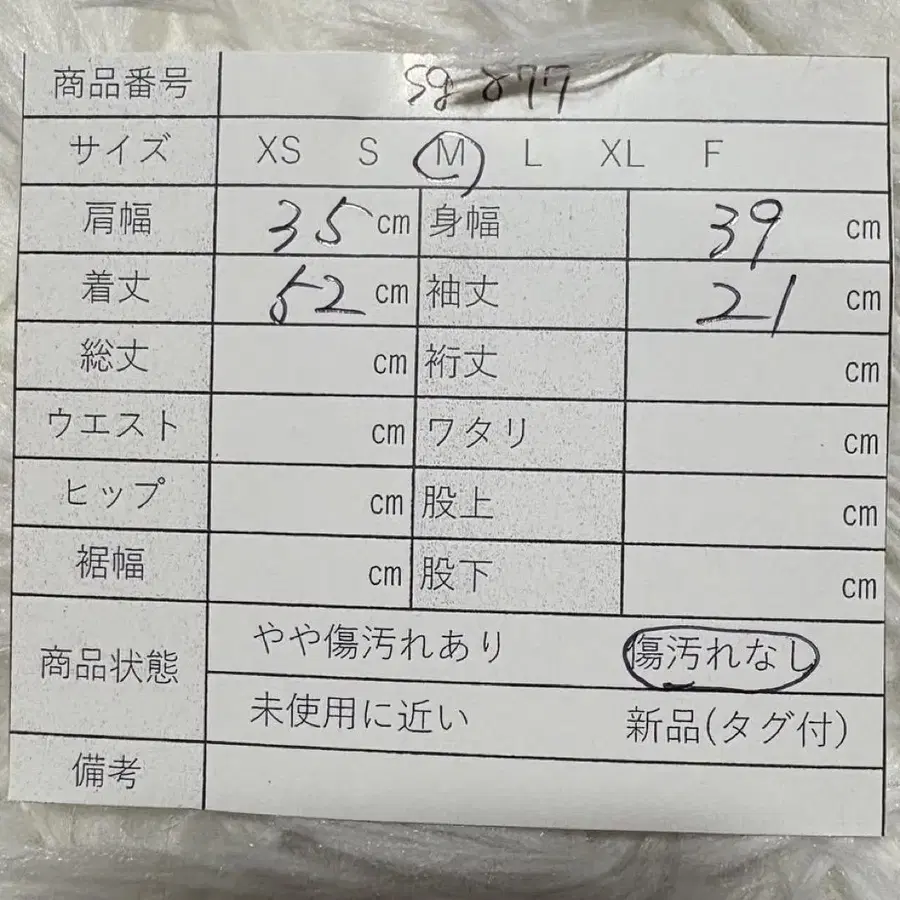 商品番号 sg 877
サイズ XS S M L XL F
肩幅 35 cm 身幅 39 cm
着丈 52 cm 袖丈 21 cm
総丈 cm 裄丈 cm
ウエスト cm ワタリ cm
ヒップ cm 股上 cm
裾幅 cm 股下 cm
商品状態 やや傷汚れあり 傷汚れなし
未使用に近い 新品(タグ付)
備考